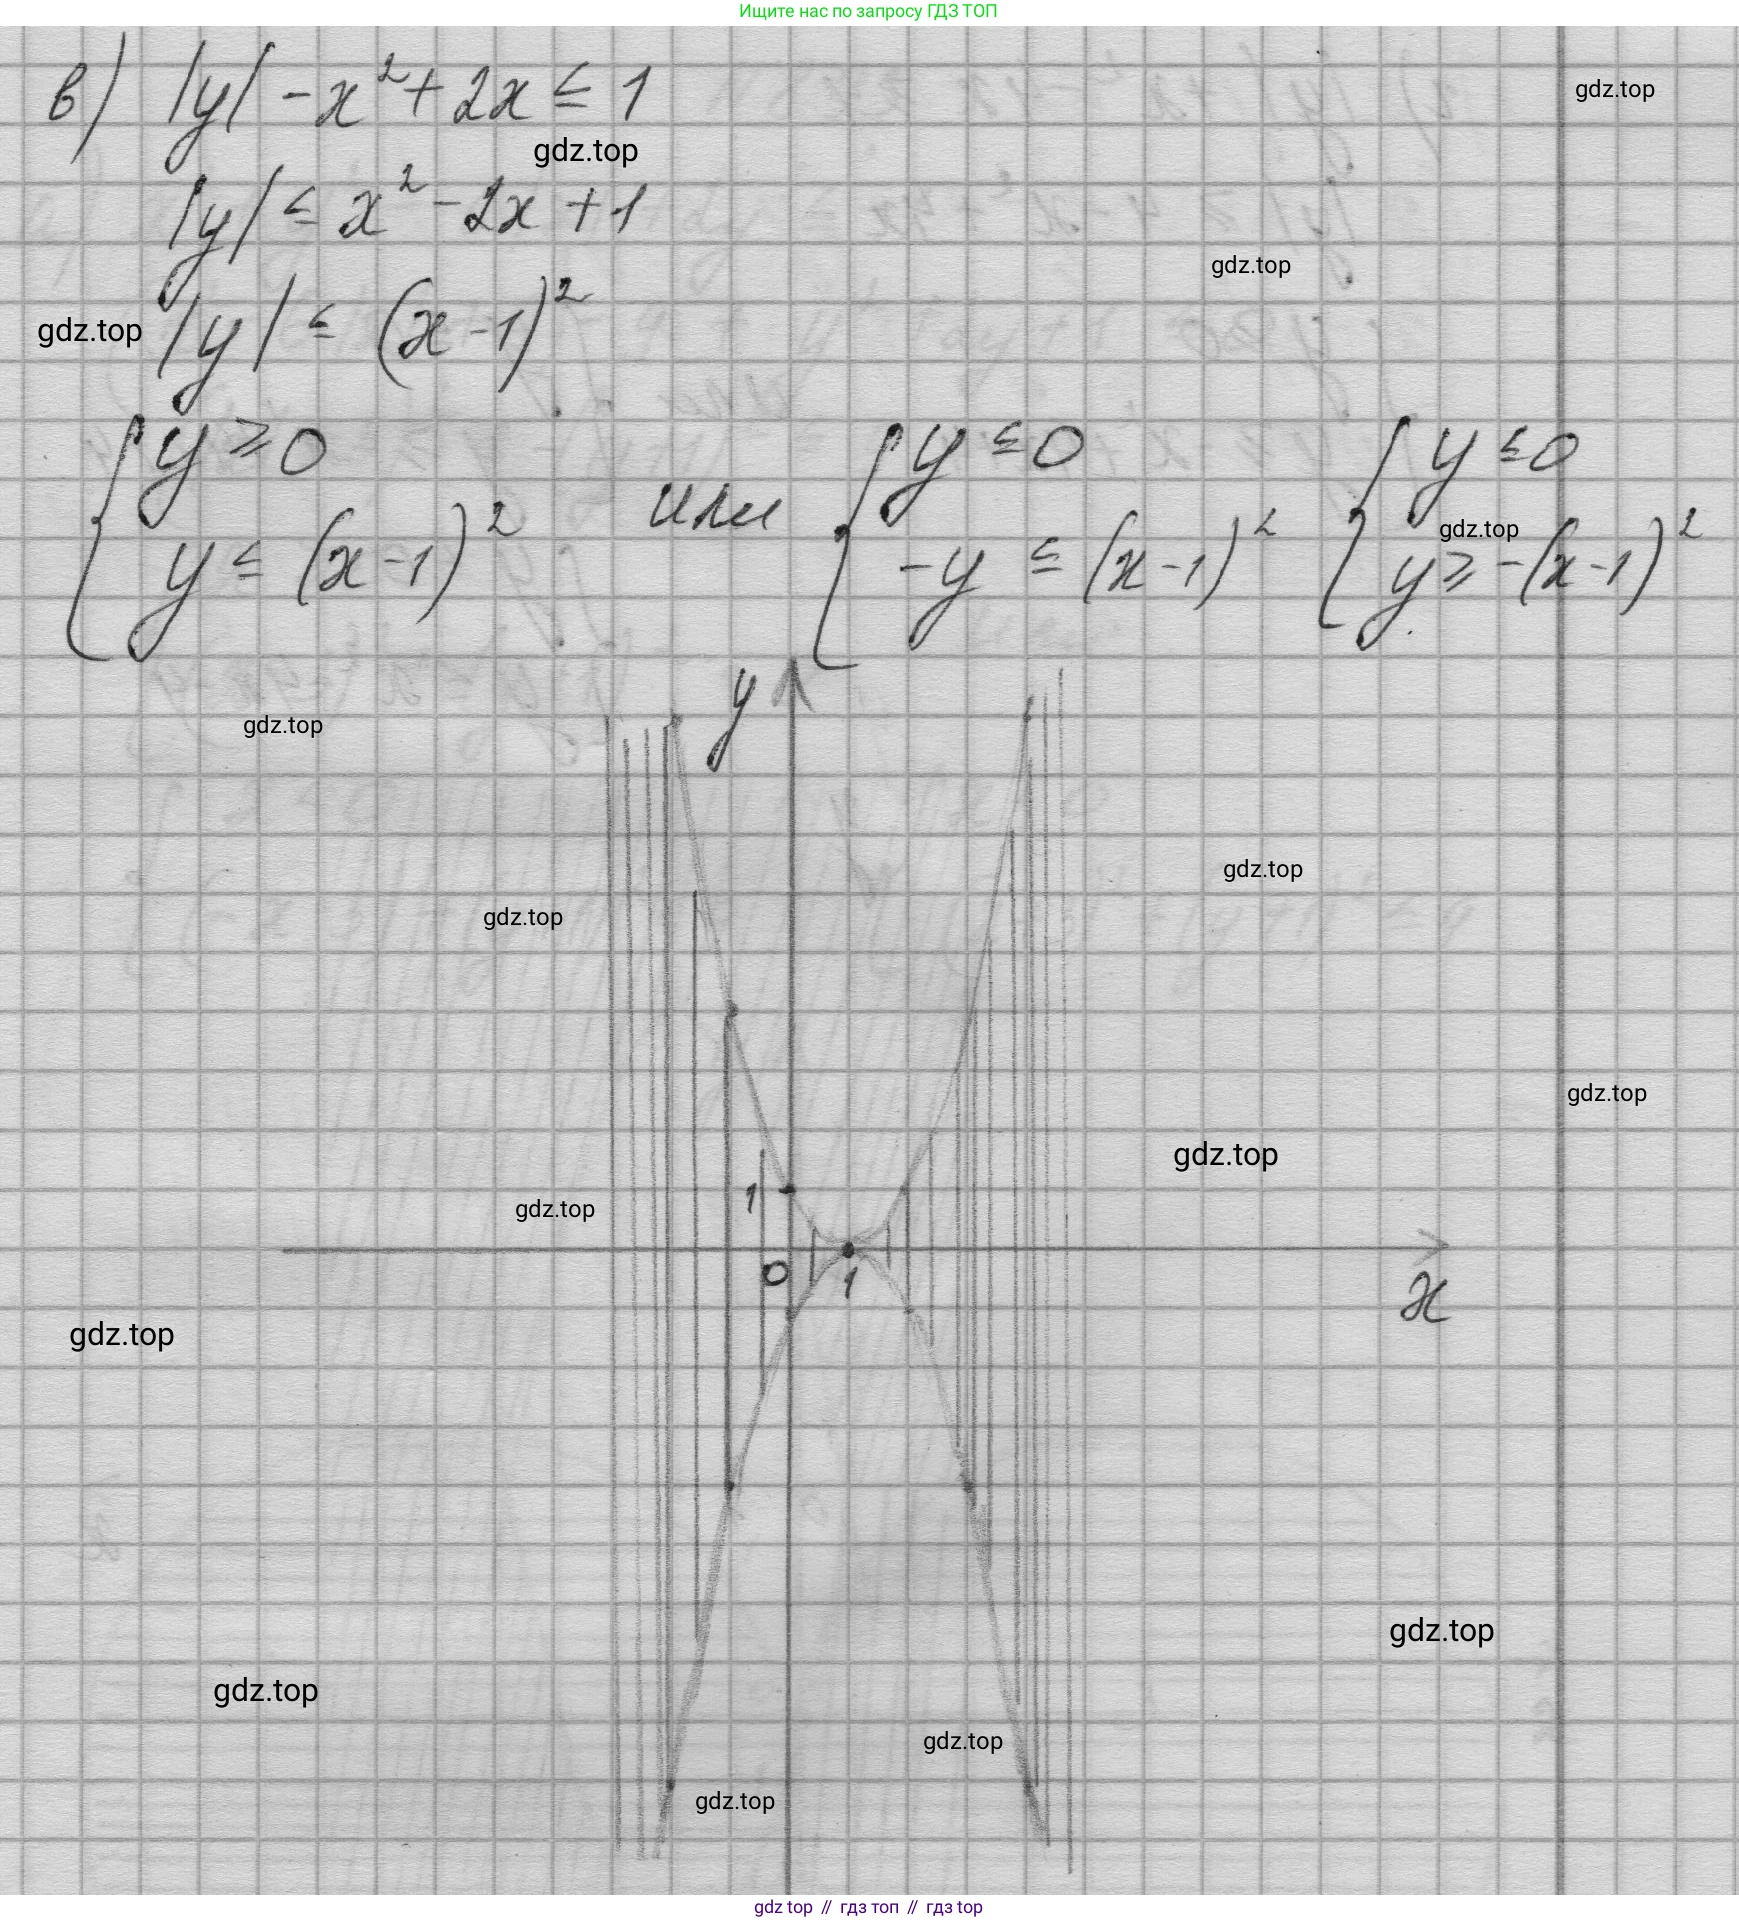 Ищите нас по запросу ГДЗ ТОП
в) |y| - x² + 2x ≤ 1
gdz.top
gdz.top
|y| ≤ x² - 2x + 1
gdz.top
|y| ≤ (x - 1)²
gdz.top
{ y ≥ 0 { y ≤ 0 { y ≤ 0
или
gdz.top
y ≤ (x - 1)² -y ≤ (x - 1)² y ≥ -(x - 1)²
y
gdz.top
gdz.top
gdz.top
gdz.top
gdz.top
1
gdz.top
0 1 x
gdz.top
gdz.top
gdz.top
gdz.top
gdz.top
gdz top // гдз топ // гдз top